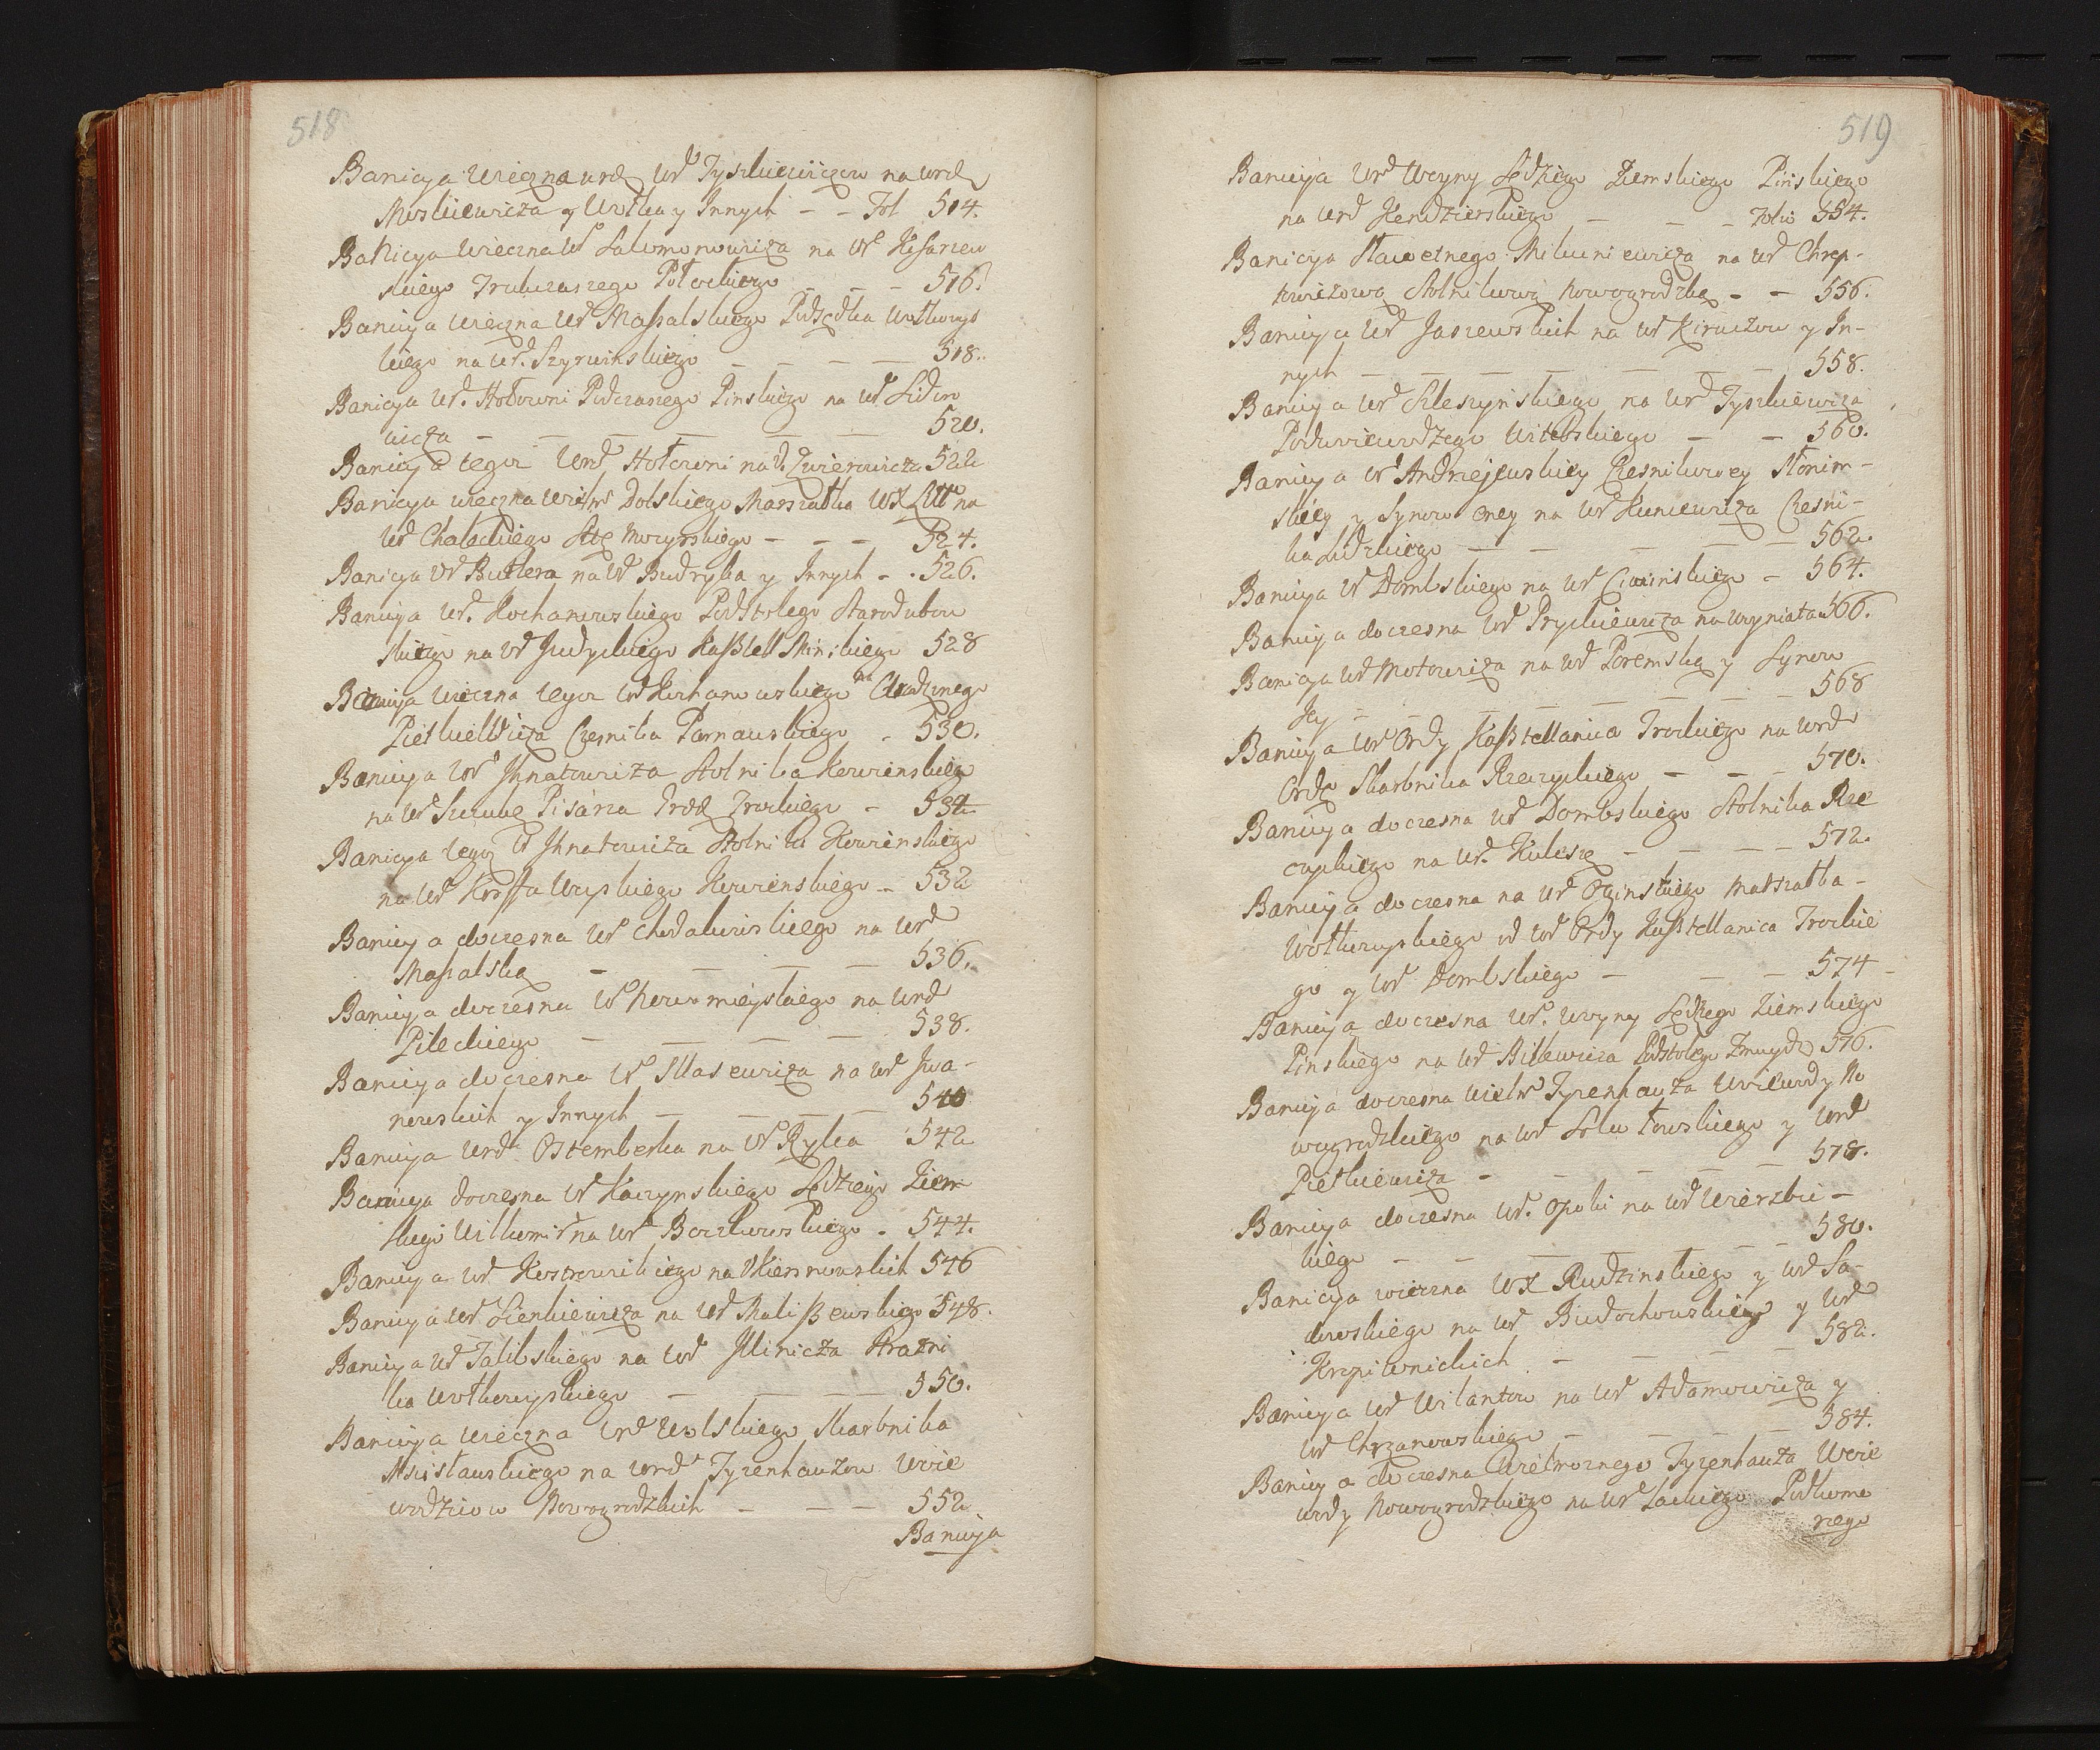 518
Banicya wieczna urd Wd Tyszkiewiczow na urd
Moskiewicza y Wołka y Innych - - Fol 514.
Banicya wieczna Wd Salomonowicza na Wd Kosarzew
skiego Trukczaszego Połockiego - - - 516.
Banicya wieczna Wd Massalskiego Podsędka Wołkowys
kiego na Wd. Szyrwinskiego - - - 518.
Banicya Wd. Hołowni Podczaszego Pinskiego na Wd Sido
wicza - - - - - - 520.
Banicya tegoż Urd Hołowni na Wd. Zwierowicza 522
Banicya wieczna Wielm Dolskiego Marszałka WX Litt na
Wd Chaleckiego Stę Mozyrskiego - - - 524.
Banicya Wd Butlera na Wd Budryka y Innych - 526.
Banicya Wd. Kochanowskiego Podstolego Starodubow
skiego na Wd Judyckiego Kasztel Minskiego 528
Banicya wieczna tegoż Wd Kochanowskiego na Urodzonego
Pietkiewicza Czesnika Parnawskiego - 530.
Banicya Wd Jhnatowicza Stolnika Kowienskiego
na Wd Sczukę Pisarza Grod Trockiego - 534
Banicya tegoż Wd Jhnatowicza Stolnika Kowienskiego
na Wd Korffa Woyskiego Kowienskiego - 532
Banicya doczesna Wd Chodakowskiego na Urd
Massalską - - - - 536.
Banicya doczesna Wd Nowomieyskiego na Urd
Pileckiego - - - - 538.
Banicya doczesna Wd Stasewicza na Wd Jwa-
nowskich y Innych - - - - 540
Banicya Urd Ostemberka na Wd Ryka 542
Banicya doczesna Wd Kaczynskiego Sędziego Ziem
skego Wilkomir na Wd Baczkowskiego - 544.
Banicya Wd Kostrowickiego na Kiersnowskich 546
Banicya Wd Sienkiewicza na Wd Maliszewskiego 548.
Banicya Wd Jalibskiego na Wd Jllinicza Strażni
ka Wołkowyskiego - - - 550.
Banicya wieczna Urd Wolskiego Skarbnika
Mscisławskiego na Urd Tyzenhauzow Woie
wodzicow Nowogrodzkich - - - 552
Banicya
519
Banicya Urd Woyny Sędziego Ziemskiego Pinskiego
na Urd Kendzierskiego - - - Folio 554.
Banicya Sławetnego Mikuniewicza na Wd Chrep-
towiczową Stolnikową Nowogrodzką - - 556.
Banicya Wd Jaszewskich na Wd Kiruczow y In-
nych - - - - - - 558.
Banicya Wd Oleszynskiego na Urd Tyszkiewicza
Podwoiewodzego Witebskiego - - 560.
Banicya Wd Andrzejewskiey Czesnikowey Słonim-
skiey y Synow oney na Wd Kuncewicza Czesni-
ka Lidzkiego - - - - - 562.
Banicya Wd Dombskiego na Wd Ciwinskiego - 564.
Banicya doczesna Wd Pryckiewicza na Woyniata 566.
Banicya Wd Motowicza na Wd Poremską y Synow
Jey - - - - - - 568
Banicya Wd Ordy Kasztellanica Trockiego na Urd
Ordę Skarbnika Rzeczyckiego - - - 570.
Banicya doczesna Wd Dombskiego Stolnika Rze
czyckiego na Wd. Kuleszę - - - - 572.
Banicya doczesna na Wd Oginskiego Marszałka -
Wołkowyskiego od Wd Ordy Kasztellanica Trockie
go y Wd Dombskiego - - - 574
Banicya doczesna Wd. Woyny Sędzego Ziemskiego
Pinskiego na Wd Billewicza Podstolego Zmuydz 576.
Banicya doczesna Wielm Tyzenhauza Woiewody No
wogrodzkiego na Wd Sołutowskiego y Urd
Pietkiewicza - - - - - 578.
Banicya doczesna Wd. Opoki na Wd Wierzbic-
kiego - - - - - 580.
Banicya wieczna WX Rudzinskiego y Wd Sa-
dowskiego na Wd Biedochowskiego y Wd
Krzpiwnickich - - - - 582.
Banicya Wd Wilantow na Wd Adamowicza y
Wd Chrzanowskiego - - - - 584.
Banicya doczesna Wielmoznego Tyzenhauza Woie
wody Nowogrodzkiego na Wd Lackiego Podkomo
rzego